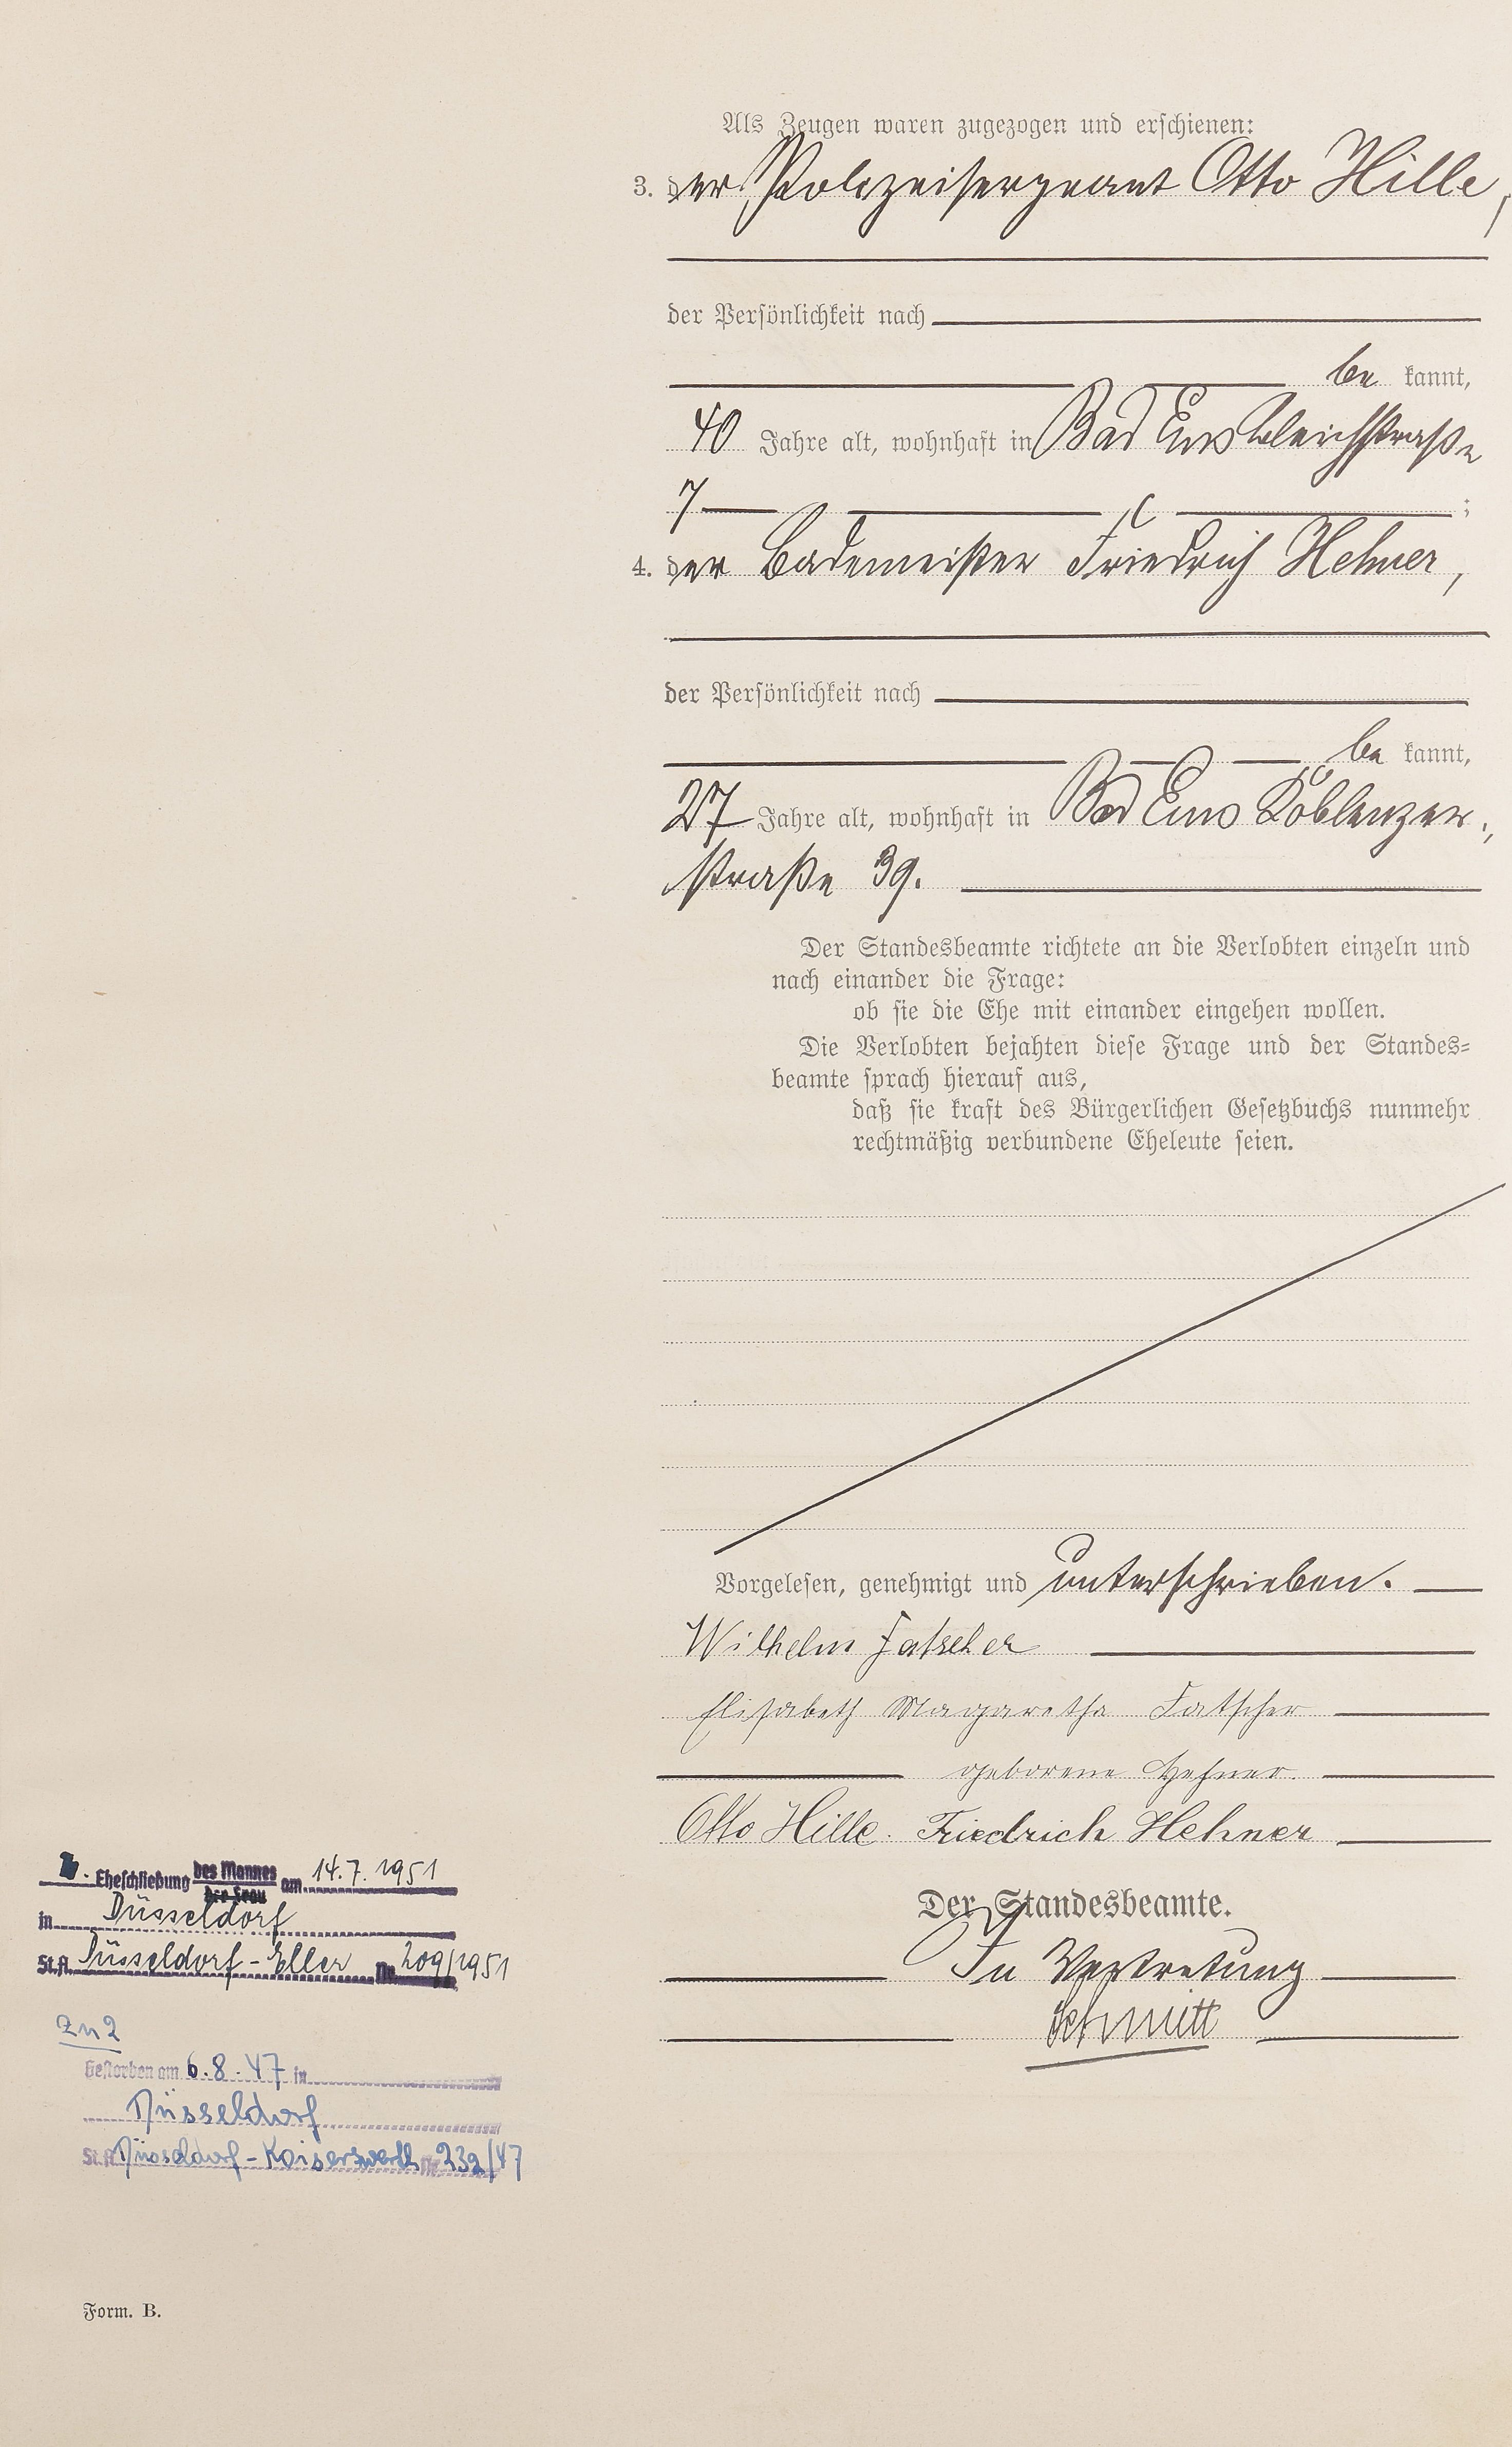 Als Zeugen waren zugezogen und erschienen:
3. der Polizeisergeant Otto Hille,
der Persönlichkeit nach
be kannt,
40 Jahre alt, wohnhaft in Bad Ems Bleichstraße
7 ;
4. der Bademeister Friedrich Hehner,
der Persönlichkeit nach
be kannt,
27 Jahre alt, wohnhaft in Bad Ems Koblenzer-
straße 39.
Der Standesbeamte richtete an die Verlobten einzeln und
nach einander die Frage:
ob sie die Ehe mit einander eingehen wollen.
Die Verlobten bejahten diese Frage und der Standes=
beamte sprach hierauf aus,
daß sie kraft des Bürgerlichen Gesetzbuchs nunmehr
rechtmäßig verbundene Eheleute seien.
Vorgelesen, genehmigt und unterschrieben.
Wilhelm Fatscher
Elisabeth Magaretha Fatscher
geborene Hehner.
Otto Hille. Friedrich Hehner
Der Standesbeamte.
In Vertretung
Schmitt
Eheschließung des Mannes der Frau am 14.7.1951
in Düsseldorf
St.A. Düsseldorf-Eller Nr. 209/1951
Zu 2
Gestorben am 6.8.47 in
Düsseldorf
St.A. Düsseldorf-Kaiserswerth Nr. 232/47
Form. B.